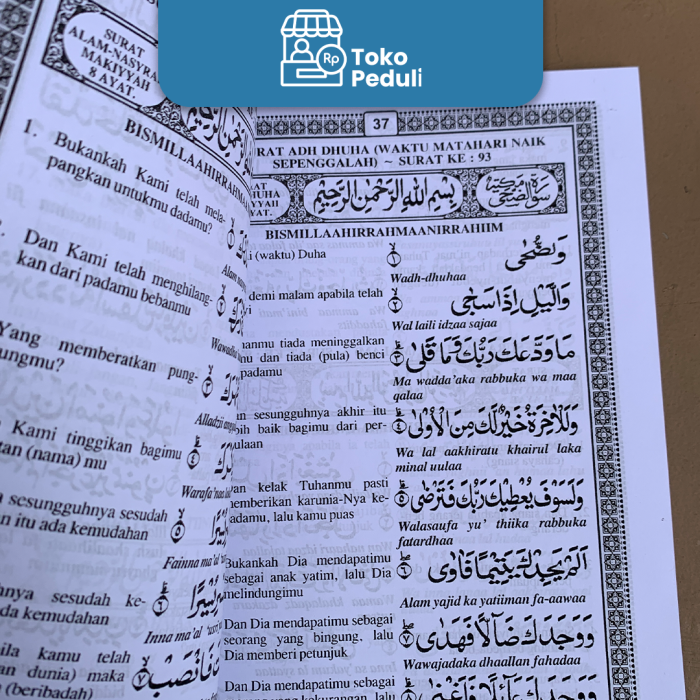 Toko
Peduli
Rp
SURAT
ALAM-NASYRAH
MAKIYYAH
8 AYAT.
BISMILLAAHIRRAHMA
1. Bukankah Kami telah mela-
pangkan untukmu dadamu?
Dan Kami telah menghilang-
kan dari padamu bebanmu
Yang memberatkan pung-
ungmu?
Kami tinggikan bagimu
(nama) mu
sesungguhnya sesudah
itu ada kemudahan
sesudah ke-
kemudahan
kamu telah
dunia) maka
(beribadah)
37
RAT ADH DHUHA (WAKTU MATAHARI NAIK
SEPENGGALAH) ~ SURAT KE : 93
بِسْمِ اللهِ الرَّحْمٰنِ الرَّحِيْمِ
BISMILLAAHIRRAHMAANIRRAHIIM
i (waktu) Duha
وَالضُّحٰى
Wadh-dhuhaa
demi malam apabila telah
وَالَّيْلِ اِذَا سَجٰى
Wal laili idzaa sajaa
hanmu tiada meninggalkan
mu dan tiada (pula) benci
padamu
مَا وَدَّعَكَ رَبُّكَ وَمَا قَلٰى
Ma wadda'aka rabbuka wa maa
qalaa
an sesungguhnya akhir itu
bih baik bagimu dari per-
ulaan
وَلَلْاٰخِرَةُ خَيْرٌ لَّكَ مِنَ الْاُوْلٰى
Wa lal aakhiratu khairul laka
minal uulaa
an kelak Tuhanmu pasti
emberikan karunia-Nya ke-
adamu, lalu kamu puas
وَلَسَوْفَ يُعْطِيْكَ رَبُّكَ فَتَرْضٰى
Walasaufa yu' thiika rabbuka
fatardhaa
Bukankah Dia mendapatimu
sebagai anak yatim, lalu Dia
melindungimu
اَلَمْ يَجِدْكَ يَتِيْمًا فَاٰوٰى
Alam yajid ka yatiiman fa-aawaa
Dan Dia mendapatimu sebagai
seorang yang bingung, lalu
Dia memberi petunjuk
وَوَجَدَكَ ضَاۤلًّا فَهَدٰى
Wawajadaka dhaallan fahadaa
Dan Dia mendapatimu sebagai
وَوَجَدَكَ عَاۤئِلًا فَاَغْنٰى